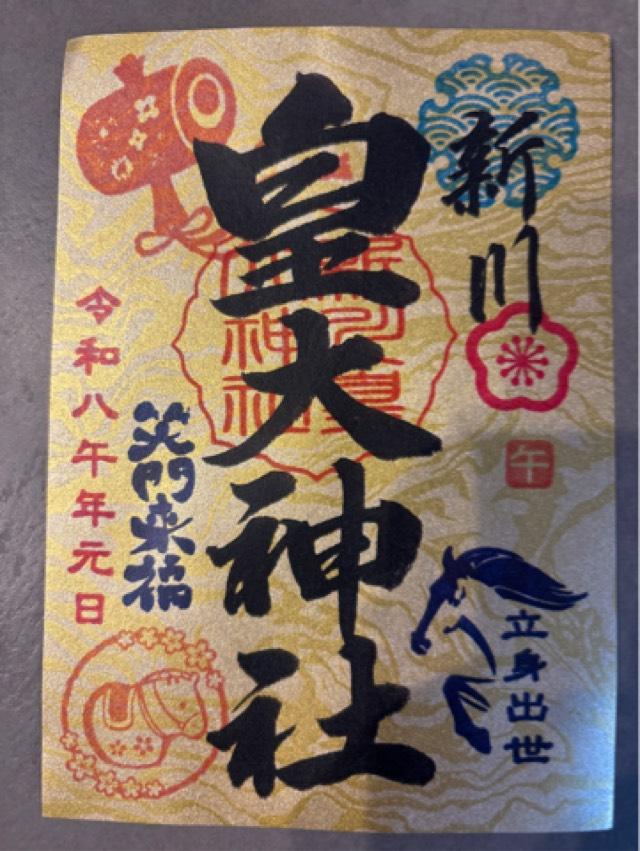 新川
午
立身出世
皇大神社
笑門来福
令和八午年元日